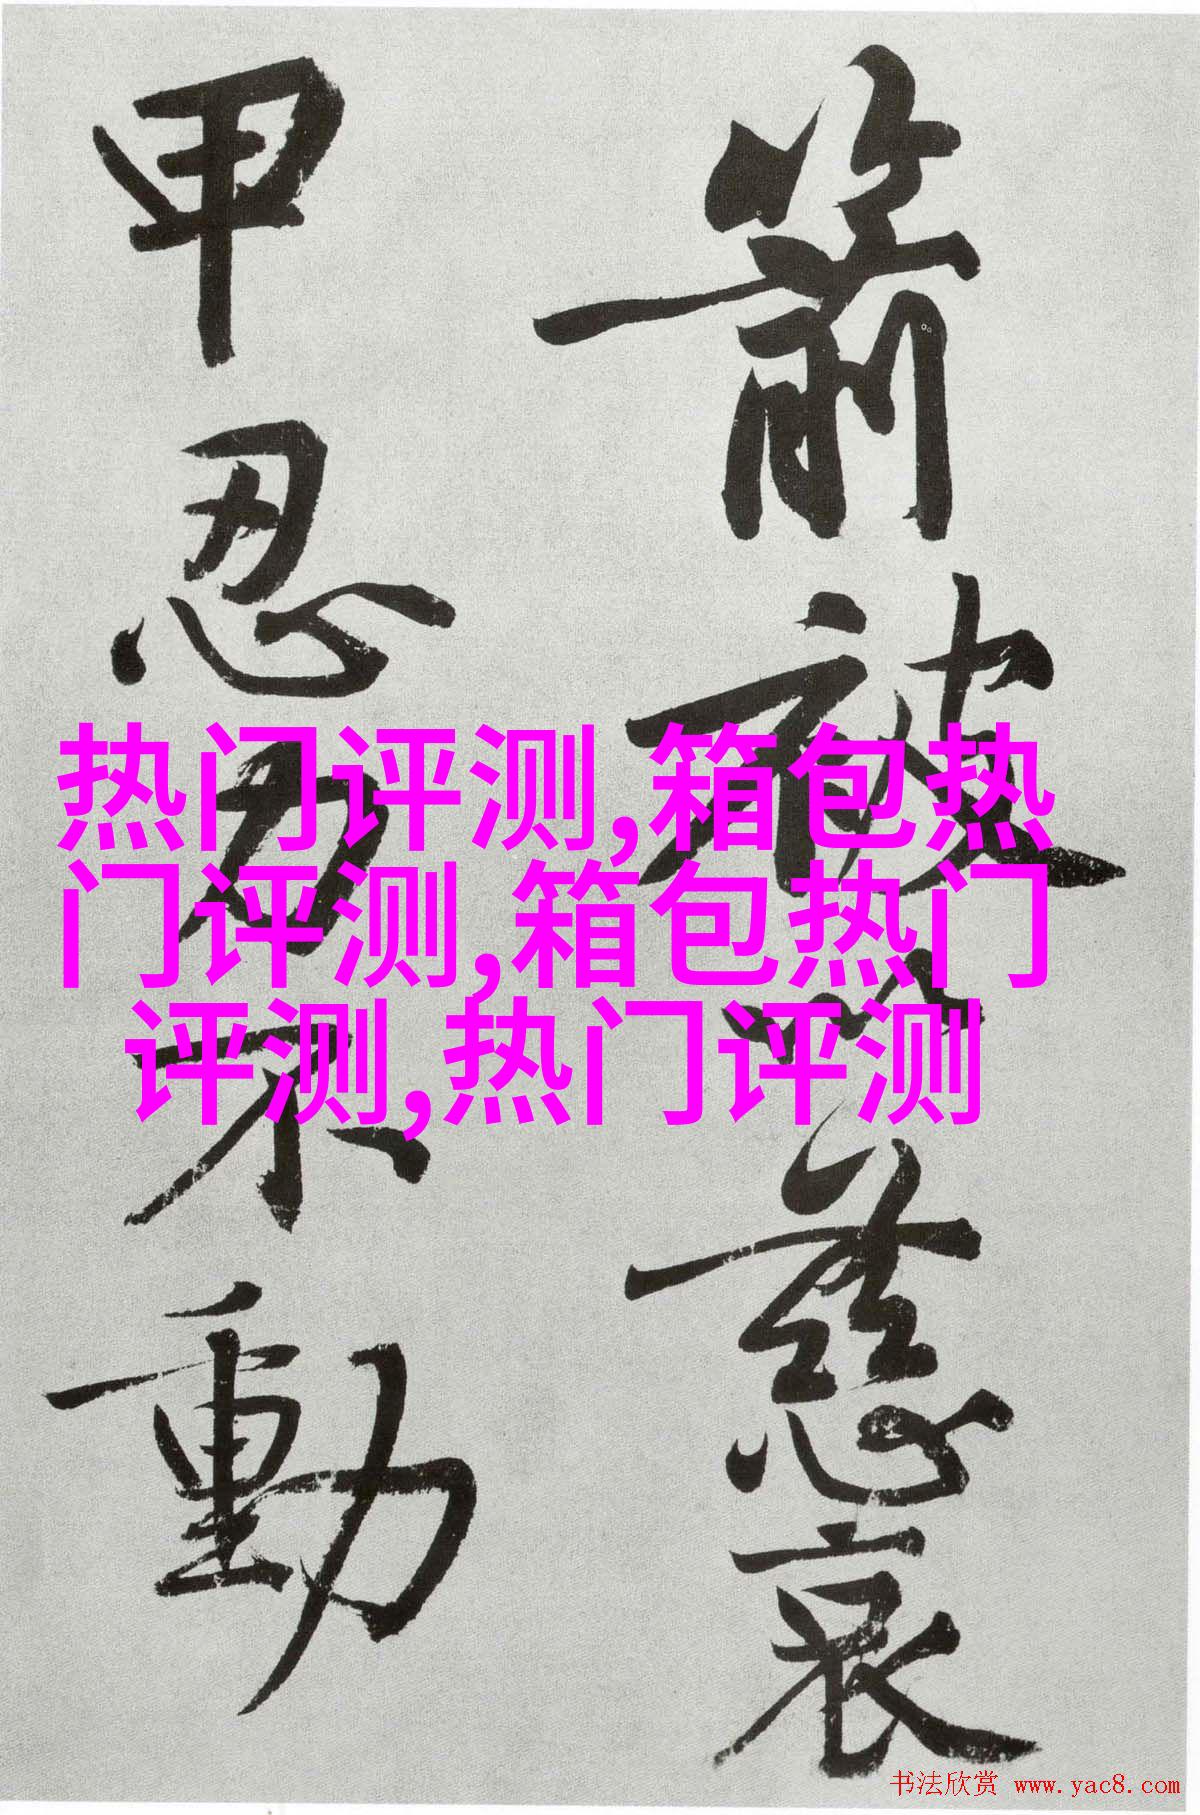 箭被以慈哀
甲忍力不動
热门评测,箱包热
门评测,箱包热门
评测,热门评测
书法欣赏 www.yac8.com